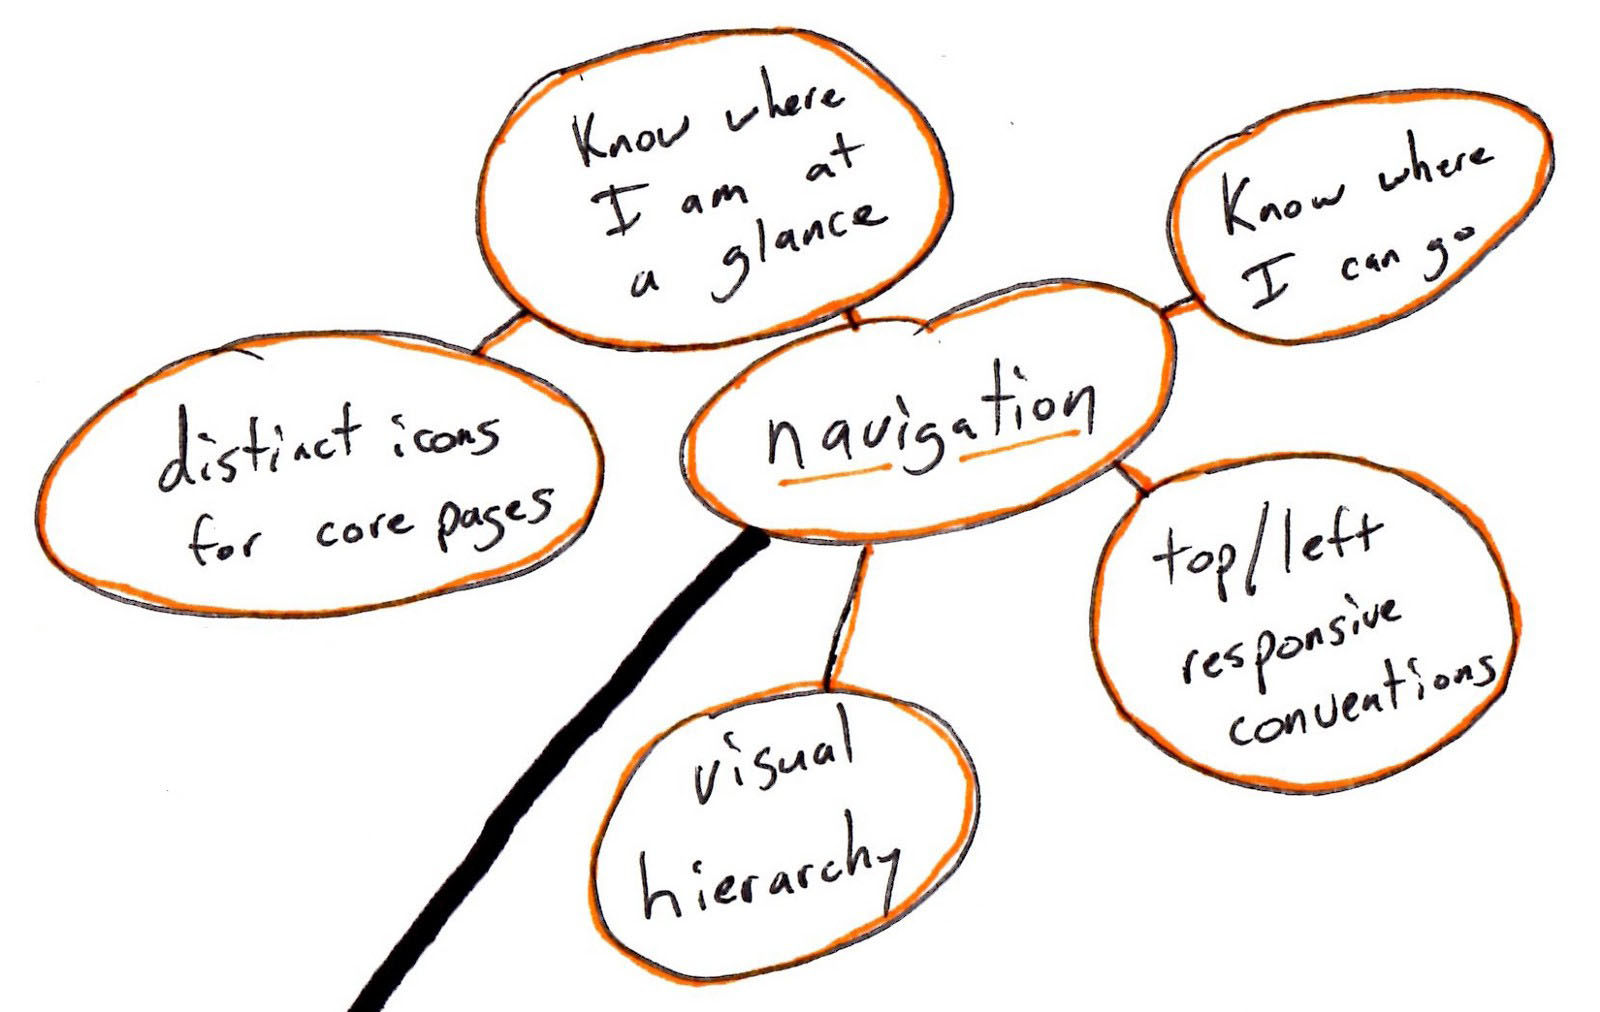 Know where
I am at
a glance
Know where
I can go
distinct icons
for core pages
navigation
top/left
responsive
conventions
visual
hierarchy